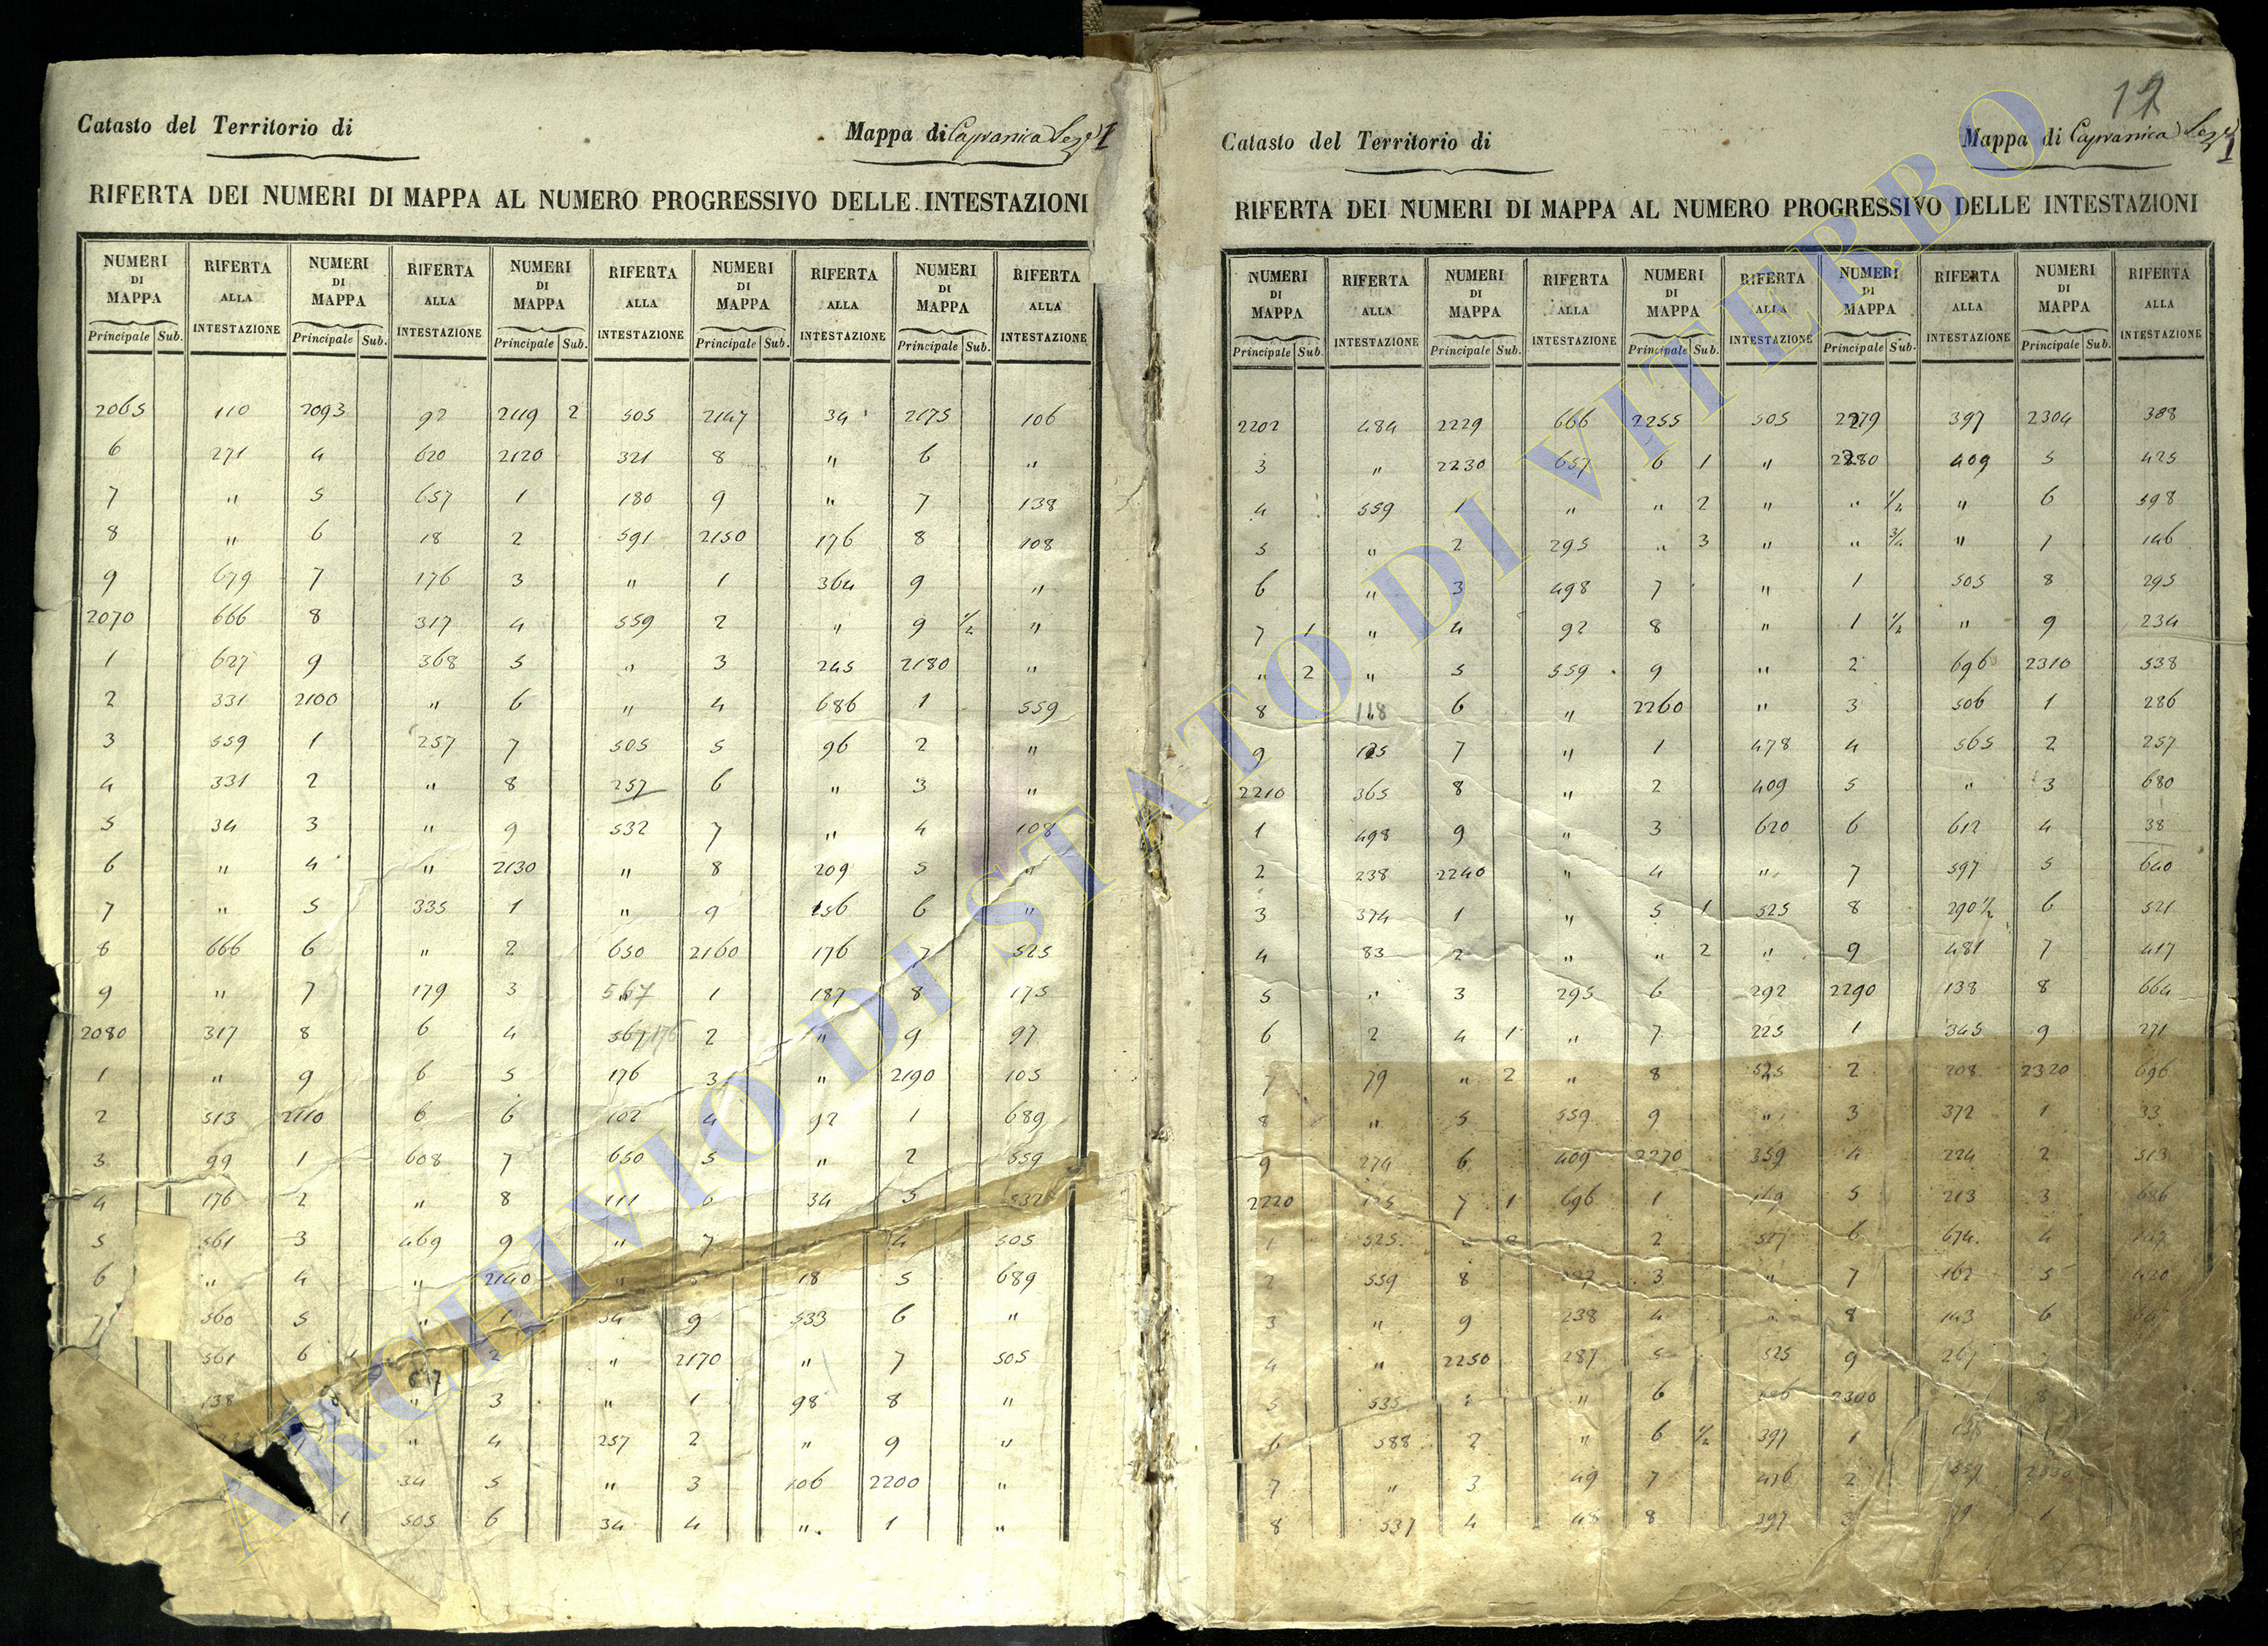 12
Catasto del Territorio di
Mappa di Capranica Sez. I
RIFERTA DEI NUMERI DI MAPPA AL NUMERO PROGRESSIVO DELLE INTESTAZIONI
NUMERI DI MAPPA RIFERTA ALLA INTESTAZIONE NUMERI DI MAPPA RIFERTA ALLA INTESTAZIONE NUMERI DI MAPPA RIFERTA ALLA INTESTAZIONE NUMERI DI MAPPA RIFERTA ALLA INTESTAZIONE NUMERI DI MAPPA RIFERTA ALLA INTESTAZIONE
Principale Sub. Principale Sub. Principale Sub. Principale Sub. Principale Sub.
2065 110 2093 92 2119 2 505 2147 34 2175 106
6 271 4 620 2120 321 8 " 6 "
7 " 5 657 1 180 9 " 7 138
8 " 6 18 2 591 2150 176 8 108
9 679 7 176 3 " 1 364 9 "
2070 666 8 317 4 559 2 " 9 1/2 "
1 627 9 368 5 " 3 245 2180 "
2 331 2100 " 6 " 4 686 1 559
3 559 1 257 7 505 5 96 2 "
4 331 2 " 8 257 6 " 3 "
5 34 3 " 9 532 7 " 4 108
6 " 4 " 2130 " 8 209 5 "
7 " 5 335 1 " 9 156 6 "
8 666 6 " 2 650 2160 176 7 525
9 " 7 179 3 567 1 187 8 175
2080 317 8 6 4 567 176 2 " 9 97
1 " 9 6 5 176 3 " 2190 105
2 513 2110 6 6 102 4 92 1 689
3 99 1 608 7 650 5 " 2 559
4 176 2 " 8 111 6 34 3 532
5 561 3 469 9 " 7 4 505
6 " 4 " 2140 " 18 5 689
7 560 5 " 1 34 9 533 6 "
561 6 2 " 2170 " 7 505
138 " 3 " 1 98 8 "
" 4 257 2 " 9 "
34 5 " 3 106 2200 "
1 505 6 34 4 " 1 "
Catasto del Territorio di
Mappa di Capranica Sez. I
RIFERTA DEI NUMERI DI MAPPA AL NUMERO PROGRESSIVO DELLE INTESTAZIONI
NUMERI DI MAPPA RIFERTA ALLA INTESTAZIONE NUMERI DI MAPPA RIFERTA ALLA INTESTAZIONE NUMERI DI MAPPA RIFERTA ALLA INTESTAZIONE NUMERI DI MAPPA RIFERTA ALLA INTESTAZIONE NUMERI DI MAPPA RIFERTA ALLA INTESTAZIONE
Principale Sub. Principale Sub. Principale Sub. Principale Sub. Principale Sub.
2202 484 2229 666 2255 505 2279 397 2304 388
3 " 2230 657 6 1 " 2280 409 5 425
4 559 1 " " 2 " " 1/2 " 6 598
5 " 2 295 " 3 " " 3/4 " 7 146
6 " 3 498 7 " 1 505 8 295
7 1 " 4 92 8 " 1 1/2 " 9 234
" 2 " 5 559 9 " 2 696 2310 538
8 118 6 " 2260 " 3 506 1 286
9 125 7 " 1 478 4 565 2 257
2210 365 8 " 2 409 5 " 3 680
1 498 9 " 3 620 6 612 4 38
2 238 2240 " 4 " 7 597 5 640
3 374 1 " 5 1 525 8 290 1/2 6 521
4 83 2 " " 2 " 9 481 7 417
5 " 3 295 6 292 2290 138 8 664
6 2 4 1 " 7 225 1 345 9 271
7 79 " 2 " 8 525 2 208 2320 696
8 " 5 559 9 " 3 372 1 33
9 274 6 409 2270 359 4 224 2 513
2220 7 1 696 1 5 213 3 686
1 525 2 527 6 674 4
2 559 8 3 " 7 162 5 420
3 " 9 238 4 8 143 6
4 " 2250 287 5 525 9 267
5 535 " 6 2300 8
6 588 2 " 6 1/2 397 1
7 " 3 49 7 416 2 559
8 537 4 48 8 397 3 1
ARCHIVIO DI STATO DI VITERBO